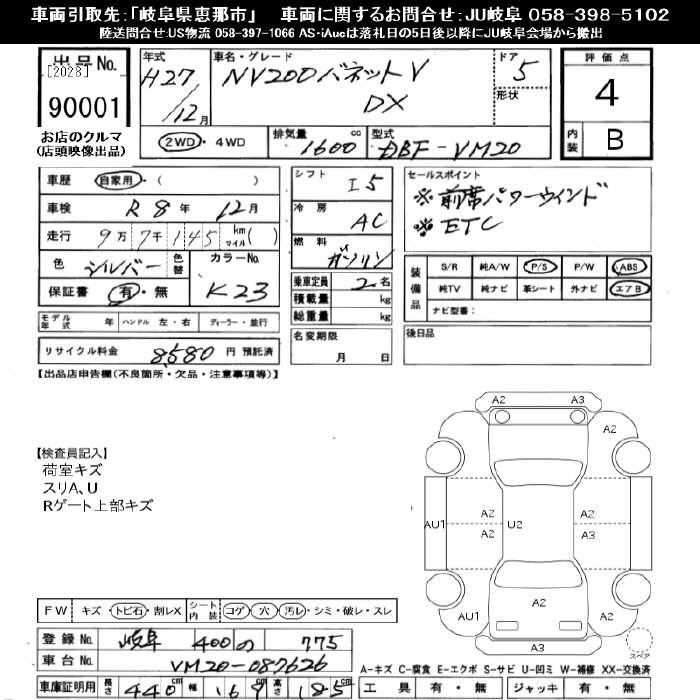 車両引取先：「岐阜県恵那市」　車両に関するお問合せ：JU岐阜 058-398-5102
陸送問合せ：US物流 058-397-1066 AS・iAucは落札日の5日後以降にJU岐阜会場から搬出
出品No.
[2028]
90001
お店のクルマ
(店頭映像出品)
年式 H27/12月
車名・グレード NV200バネットV DX
ドア 5
形状
評価点 4
内装 B
2WD・4WD
排気量 1600 cc
型式 DBF-VM20
車歴 自家用・( )
車検 R8年 12月
走行 9万7千145 km マイル( )
色 シルバー 色替
カラーNo. K23
保証書 有・無
シフト I5
冷房 AC
燃料 ガソリン
乗車定員 2名
積載量 kg
総重量 kg
名変期限 月 日
セールスポイント
※前席パワーウインド
※ETC
装備品
S/R 純A/W P/S P/W ABS
純TV 純ナビ 革シート 外ナビ エアB
ナビ型番：
後日品
モデル年式 年 ハンドル 左・右 ディーラー・並行
リサイクル料金 8,580 円 預託済
【出品店申告欄(不良箇所・欠品・注意事項等)】
【検査員記入】
荷室キズ
スリA、U
Rゲート上部キズ
A2 A3
A2 A2
AU1 A2 U2 A2
A2 A3
AU1 A2 A2
A3
スペア
FW キズ・トビ石・割レX
シート内装 コゲ・穴・汚レ・シミ・破レ・スレ
登録No. 岐阜 400 の 775
車台No. VM20-087626
車庫証明用 長さ 440cm 幅 169cm 高さ 185cm
A-キズ C-腐食 E-エクボ S-サビ U-凹ミ W-補修 XX-交換済
工具 有・無 ジャッキ 有・無